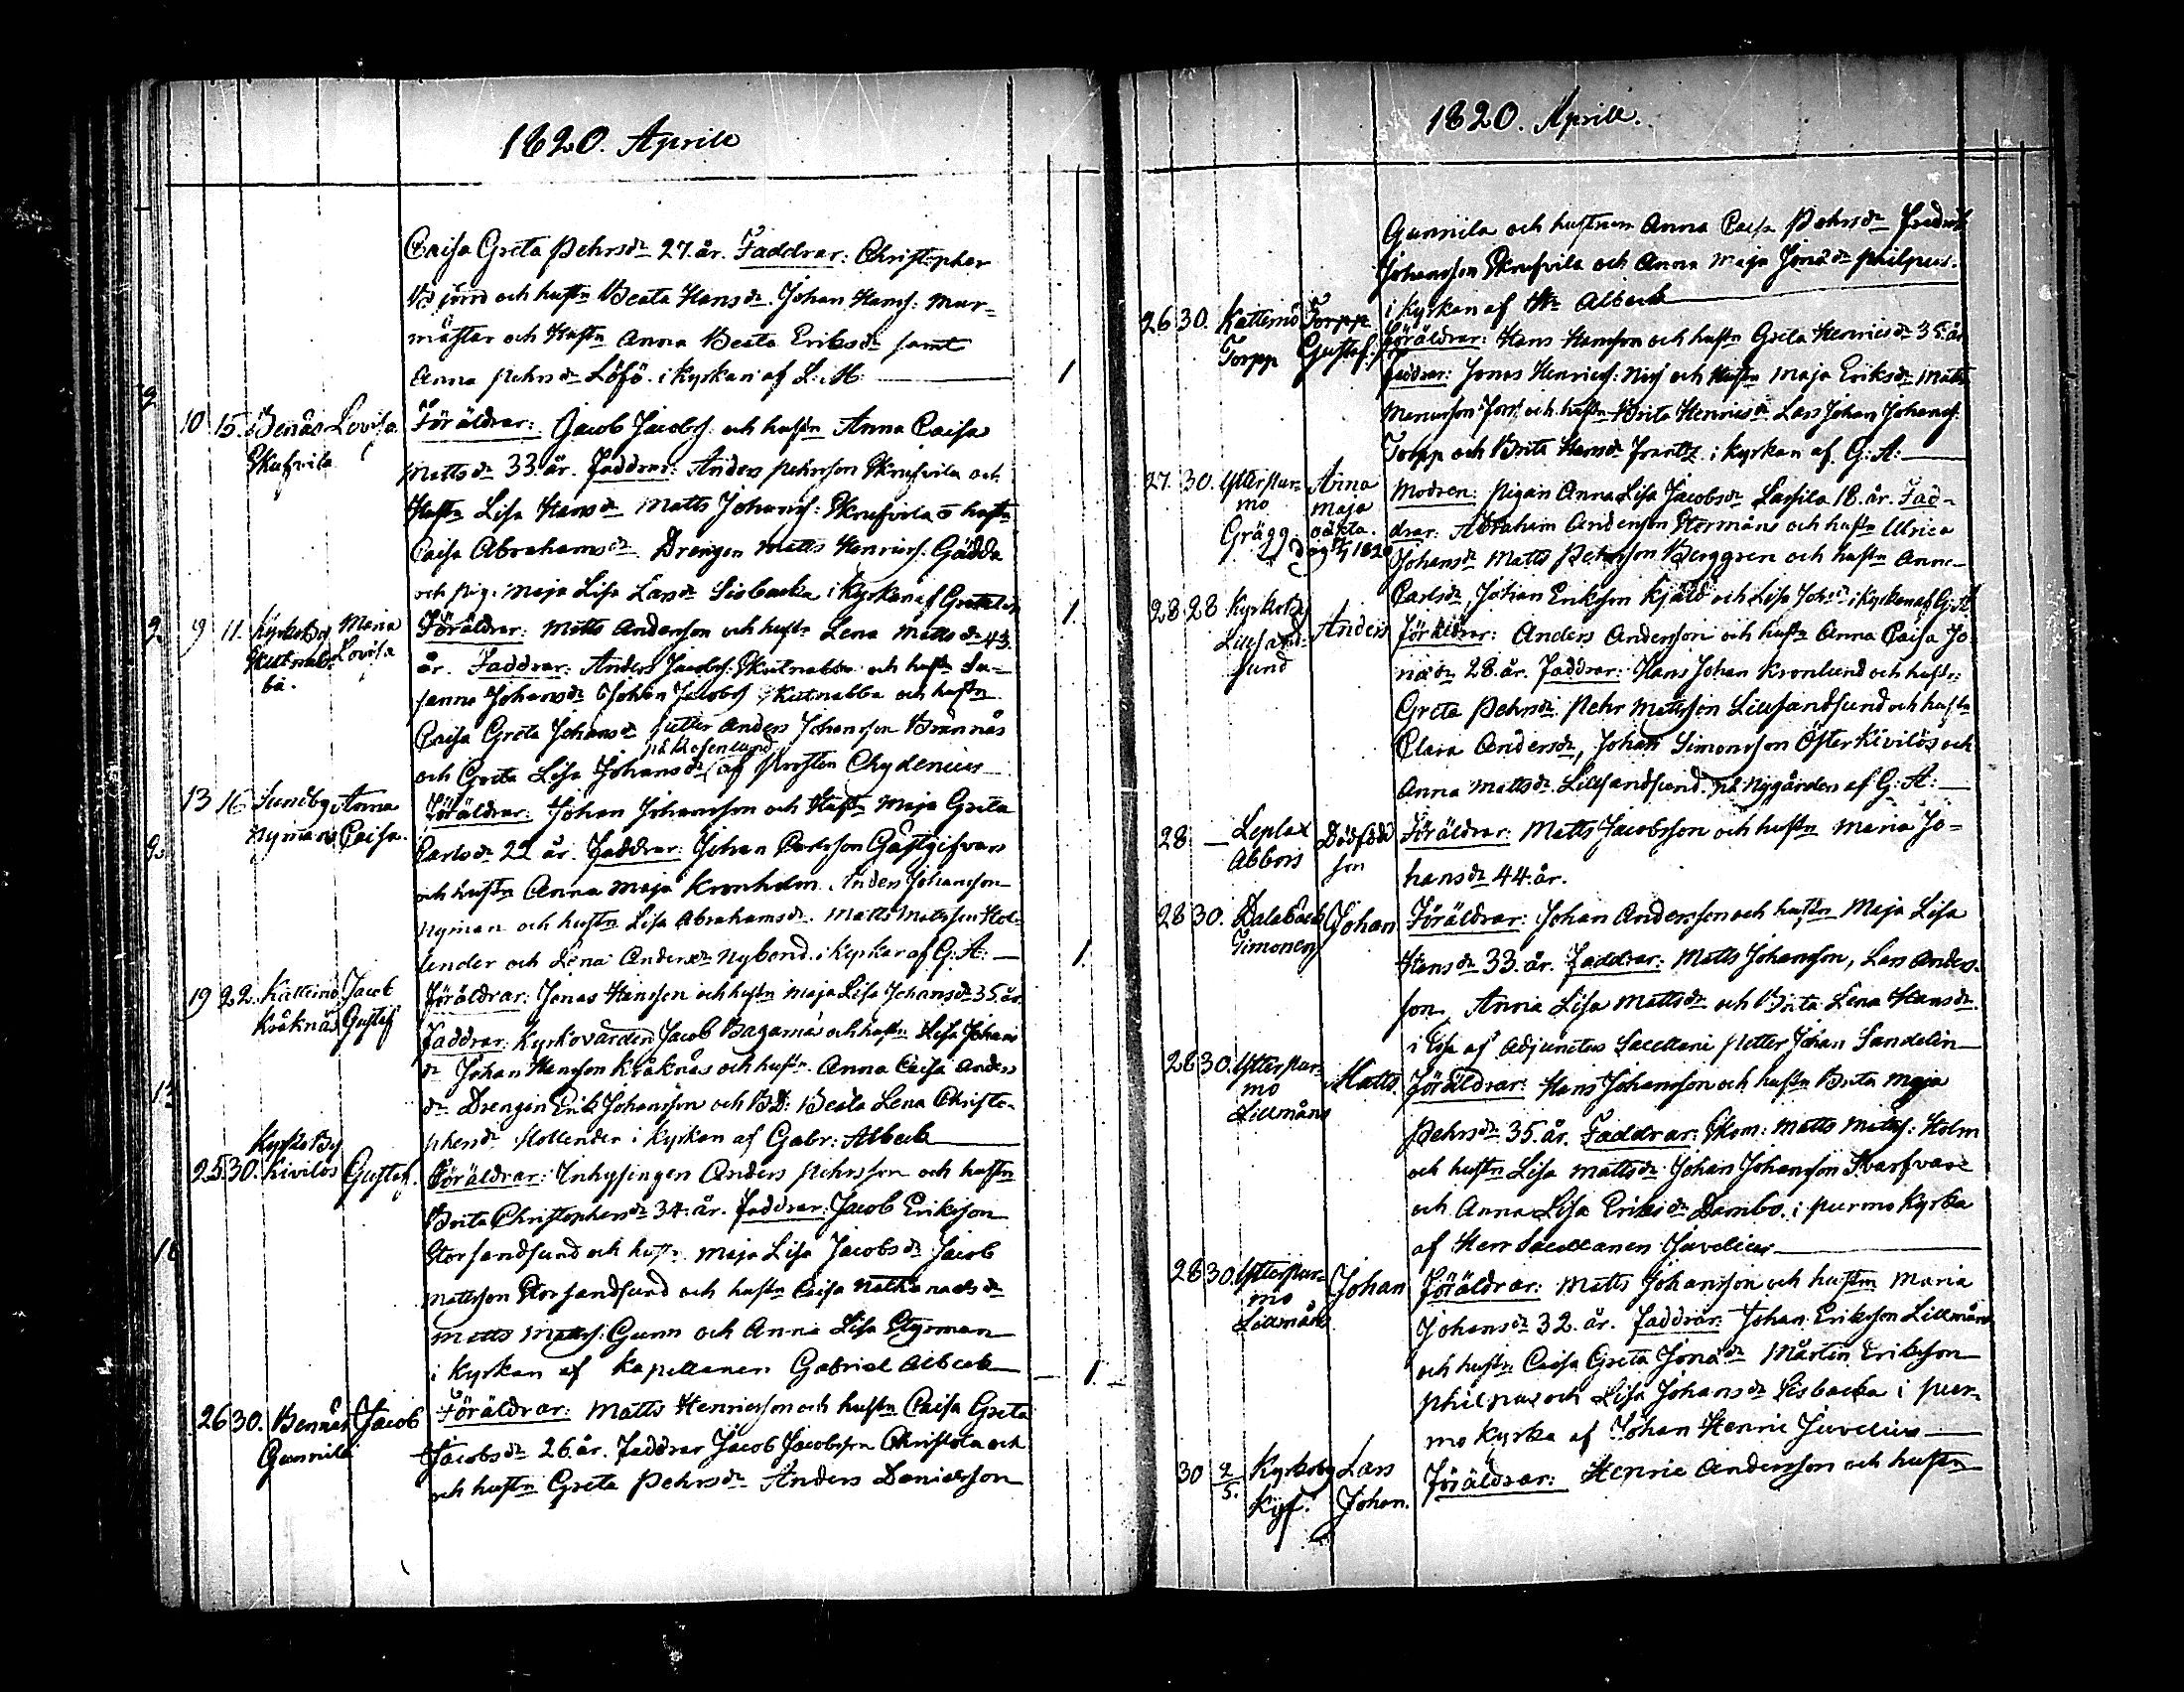 1820. Aprill
Caisa Greta Pehrsdr 27. år. Faddrar: Christopher
och hustn Beata Hansdr. Johan Hanss: Mur-
mäster och Hustn Anna Beata Eriksdr samt
Anna Pehrsdr Löfö. i Kyrkan af L: M:
1
10 15. Benäs Lovisa Föräldrar: Jacob Jacobss: och hustn Anna Caisa
Skrufvila Mattsdr 33. år. Faddrar: Anders Pehrsson Skrufvila och
Hustn Lisa Hansdr Matts Johanss: Skrufvila o hustn
Caisa Abrahamsdr. Drengen Matts Henricss: Gädda
och Pig. Maja Lisa Larsdr Sisbacka i Kyrkan af
9 11. Kyrkoby Maria Föräldrar: Matts Andersson och hustn Lena Mattsdr 43.
1.
Skutnab- Lovisa år. Faddrar: Anders Jacobss: Skutnabba och hustn Su-
ba. sanna Johansdr Johan Jacobss Skutnabba och hustn
Caisa Greta Johansdr Petter Anders Johansson Brännäs
på Rosenlund
och Greta Lisa Johansdr, af Prosten Chydenius
13 16 Sundby Anna Föräldrar: Johan Johansson och Hustn Maja Greta
Nymans Caisa. Carlsdr 22 år. Faddrar: Johan Carlsson Gästgifvars
och hustn Anna Maja Kronholm. Anders Johansson
Nyman och hustn Lisa Abrahamsdr. Matts Mattsson Hol-
lender och Lena Andersdr Nybond. i Kyrkan af G: A:
1.
19 22. Kållemo Jacob Föräldrar: Jonas Hansson och hustn Maja Lisa Johansdr 35. år.
Kråknäs Gustaf Faddrar: Kyrkovärden Jacob Bagarnäs och hustn Lisa Johans
dr Johan Hansson Kråknäs och hustn. Anna Caisa Anders
dr. Drengen Erik Johansson och BD: Beata Lena Christo-
phersdr Hollender i Kyrkan af Gabr: Albeck
Kyrkoby
25. 30. Kivilös Gustaf. Föräldrar: Inhysingen Anders Pehrsson och hustn
Brita Christophersdr 34. år. Faddrar: Jacob Eriksson
Storsandsund och hustr. Maja Lisa Jacobsdr Jacob
Mattsson Storsandsund och hustn Caisa
Matts Mattss: Gunn och Anna Lisa Styrman
i Kyrkan af Kapellanen Gabriel Albeck
1
26 30. Bennäs Jacob Föräldrar: Matts Henricsson och hustn Caisa Greta
Gunnila Jacobsdr 26. år. Faddrar Jacob Jacobsson Christola och
och hustn Greta Pehrsdr Anders Danielsson
1820. Aprill.
Gunnila och hustrun Anna Caisa Pehrsdr Fredrik
Johansson Skrufvila och Anna Maja Jonædr Philpus.
i Kyrkan af Hr Albeck
26 30. Kållemo Torpp Föräldrar: Hans Hansson och hustn Greta Henricsdr 35. år
Torpp Gustaf. Faddrar: Jonas Henricss: och Hustn Maja Eriksdr Matts
och hustn Brita Henricsdr Lars Johan Johanss:
Torpp och Brita Hansdr Frantz i Kyrkan af G: A:
27. 30. Ytterpur- Anna Modren: Pigan Anna Lisa Jacobsdr Lassila 18. år. Fad-
mo Maja drar: Abraham Andersson Storman och hustn Ulrica
Grägg oäkta. Johansdr Matts Petersson Berggren och hustn Anna
Carlsdr, Johan Eriksson Kjäld och Lisa i Kyrkan af G: A
28 28 Kyrkoby Anders Föräldrar: Anders Andersson och hustn Anna Caisa Jo-
Lillsand- nædr 28. år. Faddrar: Hans Johan Kronlund och hustn:
sund Greta Pehrsdr. Pehr Mattsson Lillsandsund och hustn
Clara Andersdr, Johan Simonsson Öfterkivilös och
Anna Mattsdr. Lillsandsund. på Nygården af G: A:
28. — Leplax Dödfödd Föräldrar: Matts Jacobsson och hustn Maria Jo-
Abbors son hansdr 44. år.
28 30. Dalaback Johan Föräldrar: Johan Andersson och hustn Maja Lisa
Timonen Hansdr 33. år. Faddrar: Matts Johansson, Lars Anders-
son, Anna Lisa Mattsdr och Brita Lena Hansdr.
i Esse af Adjunctus Sacellani Petter Johan Sandelin
28 30. Ytterpur- Matts. Föräldrar: Hans Johansson och hustn Brita Maja
mo
Lillmåns Pehrsdr 35. år. Faddrar: Skom: Matts Mattss: Holm
och hustn Lisa Mattsdr Johan Johansson Svarfvare
och Anna Lisa Eriksdr Dambo. i Purmo Kyrka
af Herr Sacellanen Juvelius
28 30. Ytterpur- Johan Föräldrar: Matts Johansson och hustrn Maria
mo
Lillmåns Johansdr 32. år. Faddrar: Johan Eriksson Lillmåns
och hustn Caisa Greta Jonædr Mårten Eriksson
Philpus och Lisa Johansdr Sisbacka i Pur-
mo Kyrka af Johan Henric Juvelius
30 2/5. Kyrkoby Lars Föräldrar: Henric Andersson och hustn
Kyf. Johan.